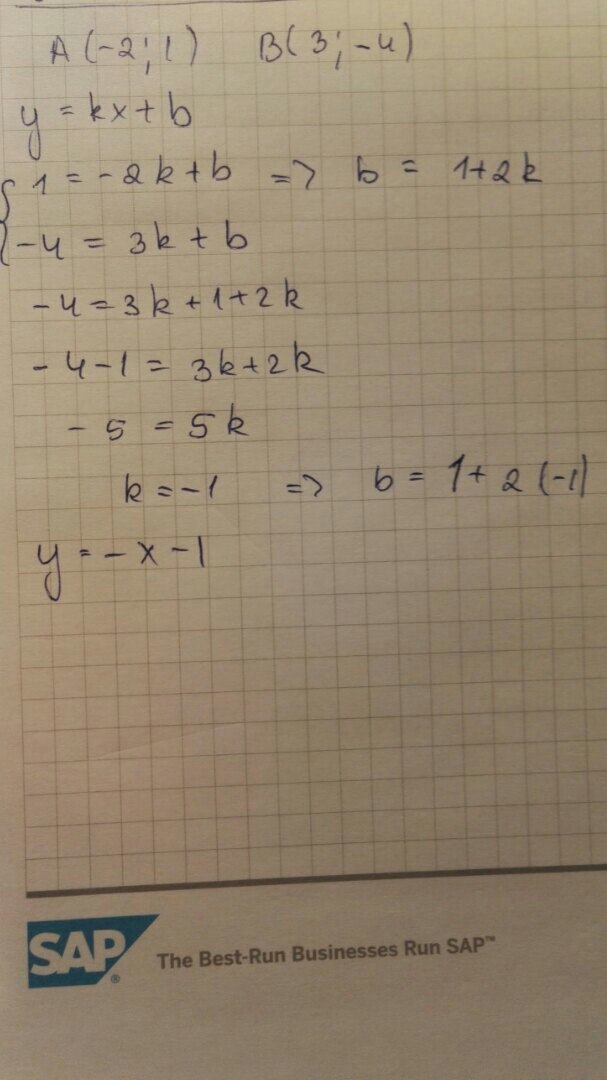 A(-2;1) B(3;-4)
y = kx + b
{ 1 = -2k + b => b = 1+2k
-4 = 3k + b
-4 = 3k + 1 + 2k
-4-1 = 3k+2k
-5 = 5k
k = -1 => b = 1 + 2(-1)
y = -x-1
SAP®
The Best-Run Businesses Run SAP™